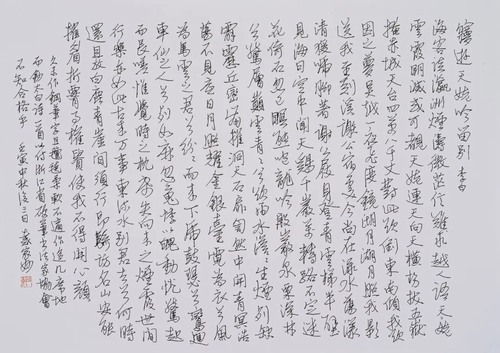 夢遊天姥吟留别 李白
海客談瀛洲煙濤微茫信難求越人語天姥
雲霞明滅或可覩天姥連天向天橫勢拔五嶽
掩赤城天台四萬八千丈對此欲倒東南傾我欲
因之夢吳越一夜飛度鏡湖月湖月照我影
送我至剡溪謝公宿處今尚在淥水蕩漾
清猨啼脚著謝公屐身登青雲梯半壁
見海日空中聞天鷄千巖萬轉路不定迷
花倚石忽已暝熊咆龍吟殷巖泉栗深林
兮驚層巔雲青青兮欲雨水澹澹兮生煙列缺
霹靂丘巒崩摧洞天石扉訇然中開青冥浩
蕩不見底日月照耀金銀臺霓為衣兮風
為馬雲之君兮紛紛而來下虎鼓瑟兮鸞迴
車仙之人兮列如麻忽魂悸以魄動怳驚起
而長嗟惟覺時之枕席失向來之煙霞世間
行樂亦如此古來萬事東流水别君去兮何時
還且放白鹿青崖間須行即騎訪名山安能
摧眉折腰事權貴使我不得開心顔
久未作鋼筆字
太白詩一首以付浙江省硬筆書法家協會
不知合格乎 壬寅中秋後三日